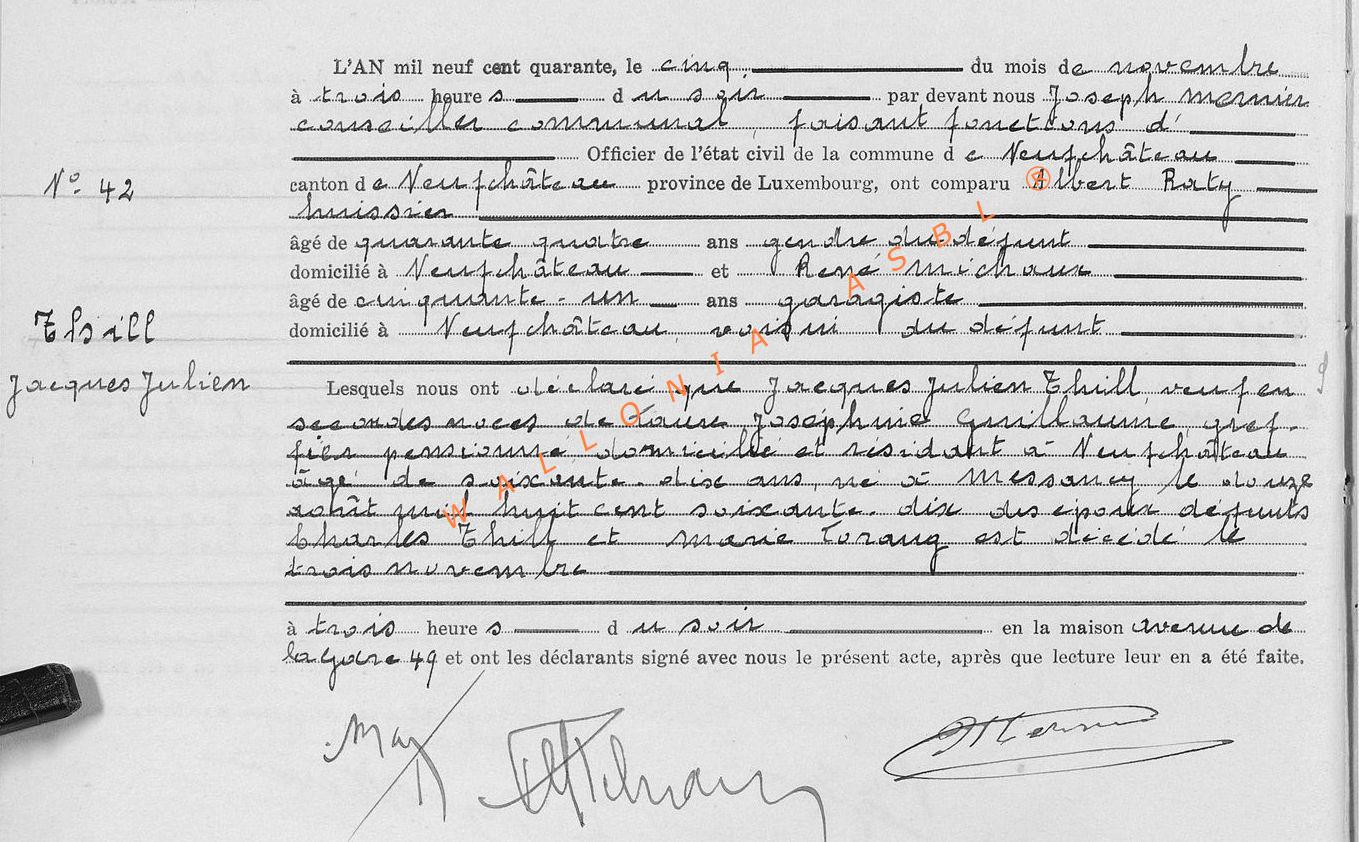 L'AN mil neuf cent quarante, le cinq du mois de novembre
à trois heures du soir par devant nous Joseph Mernier
conseiller communal, faisant fonctions d'
Officier de l'état civil de la commune de Neufchâteau
N° 42
canton de Neufchâteau province de Luxembourg, ont comparu Albert Raty
huissier
âgé de quarante quatre ans gendre du défunt
domicilié à Neufchâteau et René Michaux
âgé de cinquante-un ans garagiste
Thill
domicilié à Neufchâteau, voisin du défunt
Jacques Julien
Lesquels nous ont déclaré que Jacques Julien Thill, veuf en
secondes noces de Laure Joséphine Guillaume, gref-
fier pensionné, domicilié et résidant à Neufchâteau
âgé de soixante-dix ans, né à Messancy le douze
août mil huit cent soixante-dix des époux défunts
Charles Thill et Marie Torang est décédé le
trois novembre
à trois heures du soir en la maison avenue de
la Gare 49 et ont les déclarants signé avec nous le présent acte, après que lecture leur en a été faite.
® WALLONIA ASBL